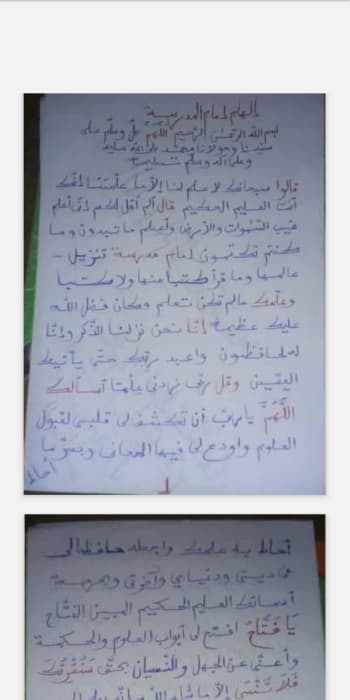 إلهام إمام المدرسية
بسم الله الرحمن الرحيم اللهم صل وسلم على
سيدنا ومولانا محمد صلى الله عليه
وعلى آله وسلم تسليما
قالوا سبحانك لا علم لنا إلا ما علمتنا إنك
أنت العليم الحكيم قال ألم أقل لكم إني أعلم
غيب السموات والأرض وأعلم ما تبدون وما
كنتم تكتمون إمام مدرسة تنزيل
عالمها وما قرأ كتبا منها ولا كتبا
وعلمك مالم تكن تعلم وكان فضل الله
عليك عظيما إنا نحن نزلنا الذكر وإنا
له لحافظون واعبد ربك حتى يأتيك
اليقين وقل رب زدني علما أسألك
اللهم يا رب أن تكشف لي قلبي لقبول
العلوم واودع لي فيها المعاني وبسر ما
أحاط
أحاط به علمك واجعله حافظا لي
في ديني ودنياي وآخرتي وبحرمة
أسمائك العليم الحكيم المبين الفتاح
يَا فَتَّاحُ افتح لي أبواب العلوم والحكمة
وأعذني عن الجهل والنسيان بحق سَنُقْرِئُكَ
فَلَا تَنْسَى إلا ما شاء الله إنه يعلم ال